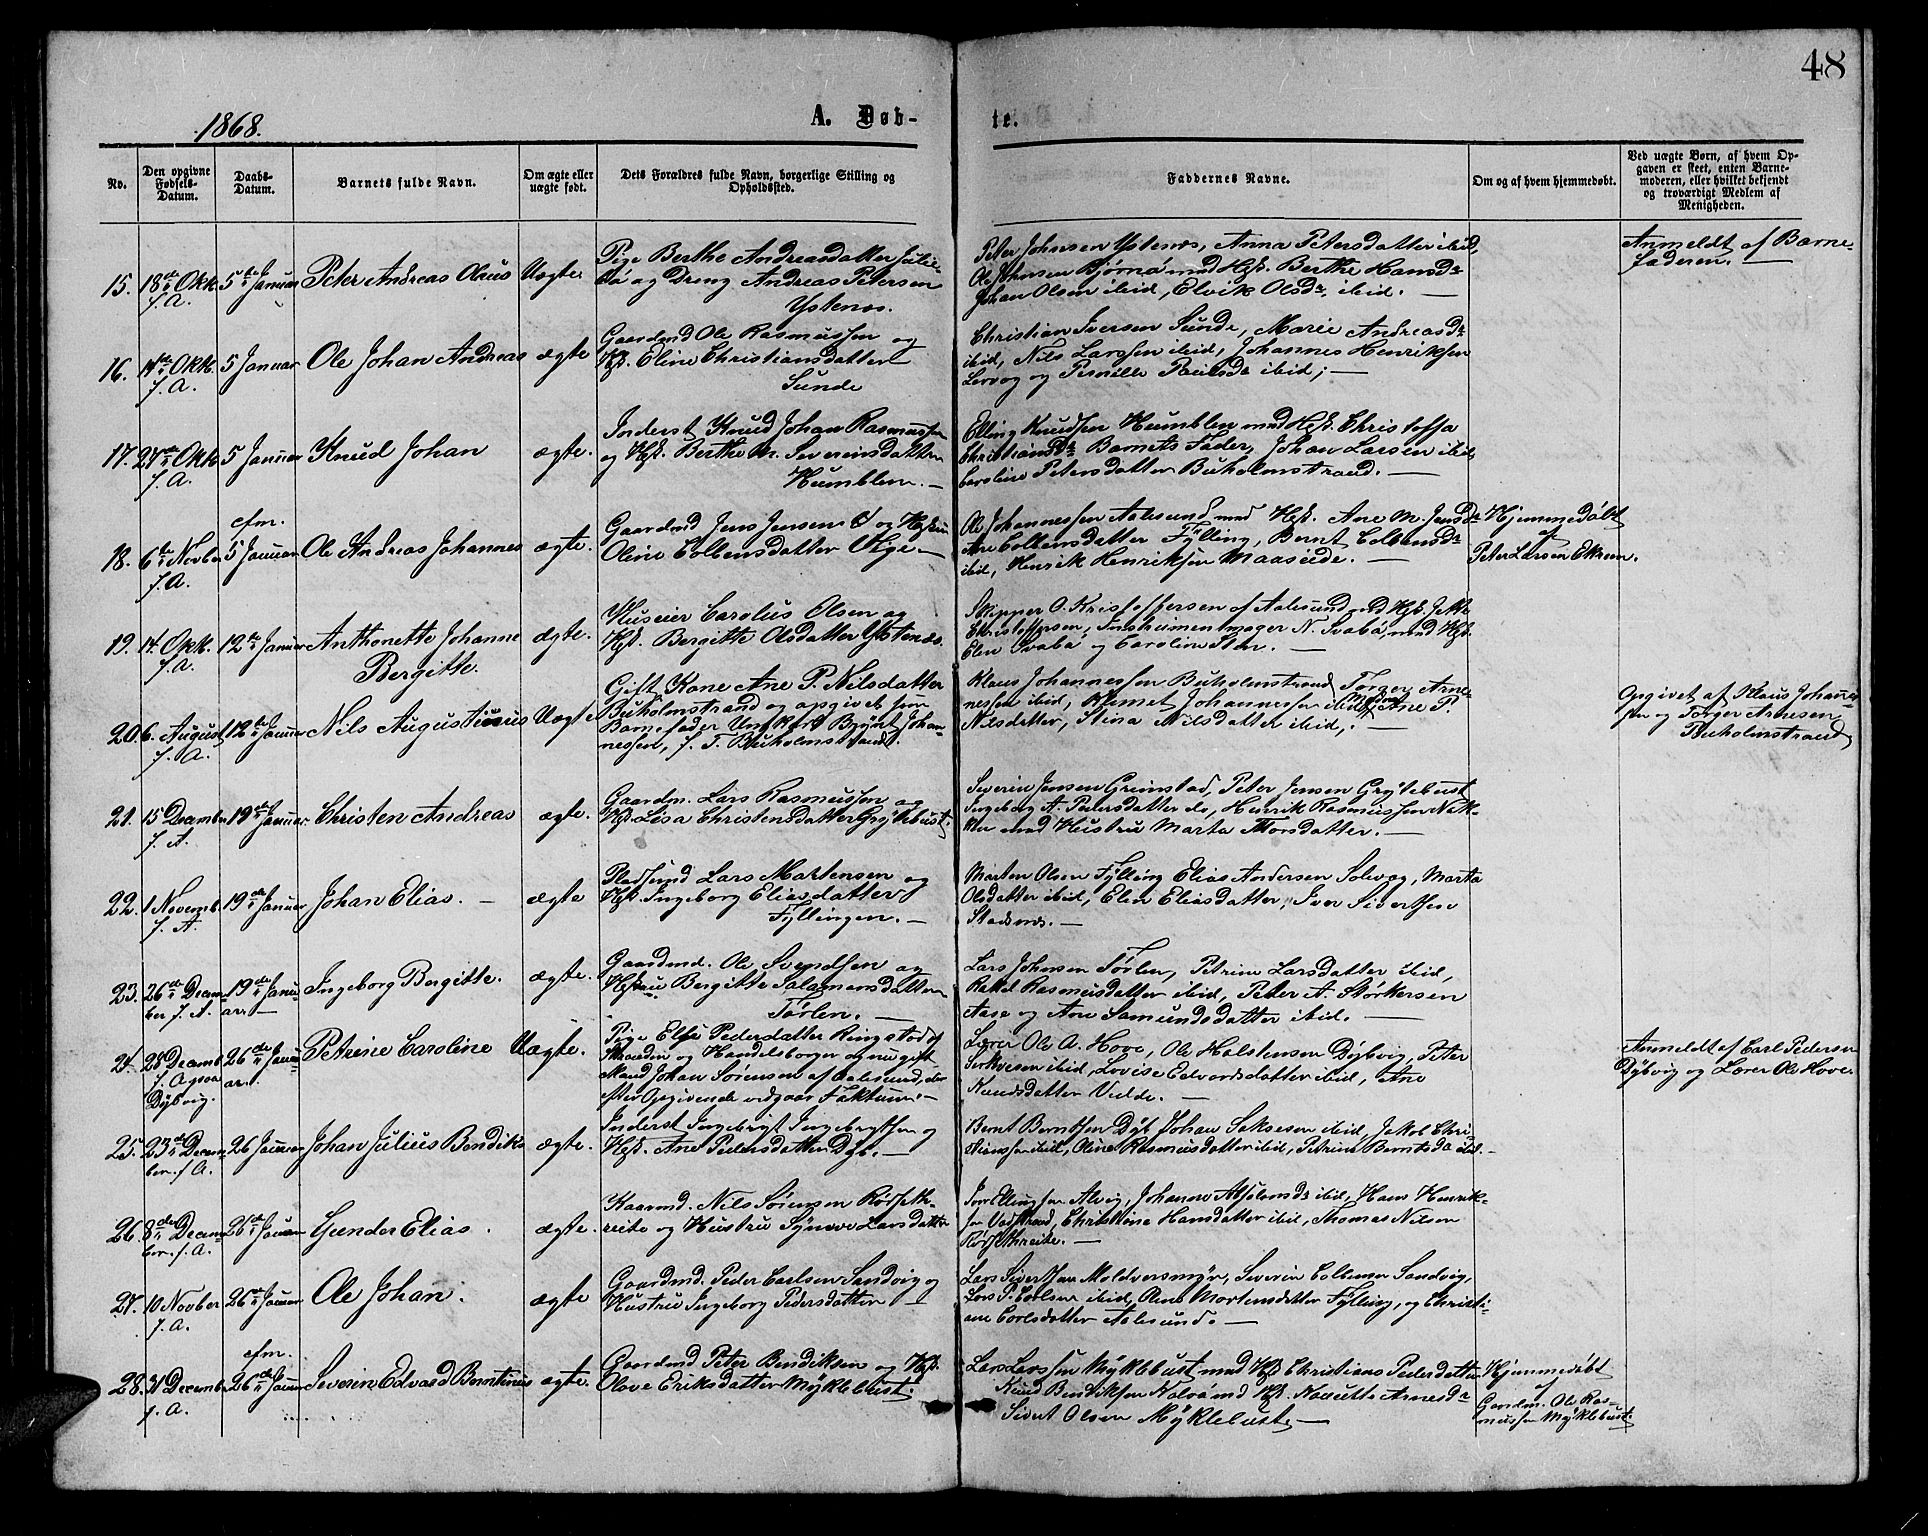 48
1868.
A. Døb-
te.
No.
Den opgivne
Fødsels-
Datum.
Daabs-
Datum.
Barnets fulde Navn.
Om ægte eller
uægte født.
Dets Forældres fulde Navn, borgerlige Stilling og
Opholdssted.
Faddernes Navne.
Om og af hvem hjemmedøbt.
Ved uægte Børn, af hvem Op-
gaven er skeet, enten Barne-
moderen, eller hvilket bekjendt
og troværdigt Medlem af
Menigheden.
15. 18de Oktb. f. A. 5te Januar Peter Andreas Olaus Uægte.
Pige Berthe Andreasdatter
og Dreng Andreas Petersen
Ystenæs.
Peter Johnsen Ystenæs, Anna Petersdatter ibid,
Ole Johnsen Bjørnø med Hst. Berthe Hansdr
Johan Olsen ibid, Elvik Olsdr. ibid. —
Anmeldt af Barne-
faderen. —
16. Oktb. f. A. 5 Januar Ole Johan Andreas ægte
Gaardmd Ole Rasmussen og
Hst. Eline Christiansdatter
Sunde
Christian Iversen Sunde, Marie Andreasdr
ibid, Nils Larssen ibid, Johannes Henriksen
Lervog og Pernille ibid; —
17. 27de Oktb. f. A. 5 Januar Knud Johan ægte.
Inderst Knud Johan Rasmussen
og Hst. Berthe M. Severinsdatter
Humblen. —
Elling Knudsen Humblen med Hst. Christoffa
Christiansdr Barnets Fader, Johan Larsen ibid,
Caroline Petersdatter Buholmstrand. —
18. 6te Novber f. A. cfm. 5 Januar Ole Andreas Johannes ægte.
Gaardmd Jens Jensen og Hustru
Oline Colbensdatter —
Ole Johannessen Aalesund med Hst. Ane M. Jensdr
Ane Colbensdatter Fylling, Bernt
ibid, Henrik Henriksen Maaseide. —
Hjemmedøbt
af
Peter Larsen Ekrem.
19. 14. Oktb. f. A. 12te Januar Anthonette Johanne
Bergitte. ægte.
Huseier Carolus Olsen og
Hst. Bergitte Olsdatter Ystenæs.
Skipper O. Kristoffersen af Aalesund med Hst.
Christoffersen, Instrumentmager N. Svabø, med Hst.
Elen Svabø og Caroline —
20. 6. August f. A. 12te Januar Nils Augustinus Uægte
Gift Kone Ane P. Nilsdatter
Buholmstrand og opgivet som
Barnefader Ungkarl Johan-
nessen, f. T. Buholmstrand.
Klaus Johannessen Buholmstrand Torger Arne-
nessen ibid, Johannessen ibid, Ane P.
Nilsdatter, Stina Nilsdatter ibid; —
Opgivet af Klaus Johannes-
sen og Torger Arnesen
Buholmstrand
21. 15 Decembr f. A. 19de Januar Christen Andreas ægte.
Gaardm. Lars Rasmussen og
Hst. Lisa Christensdatter Grytebust.
Severin Jensen Grimstad, Peter Jensen Grytebust
Ingeborg A. Pedersdatter do, Henrik Rasmussen
med Hustru Marta Thorsdatter. —
22. 1 Novemb. f. A. 19de Januar Johan Elias. — ægte
Pladsmd Lars Martensen og
Hst. Ingeborg Eliasdatter
Fyllingen. —
Marten Olsen Fylling Elias Andersen Solevog, Marta
Olsdatter ibid, Elen Eliasdatter, Iver Sivertsen
Stadsnæs. —
23. 26de Decem-
ber f. A. 19de Janu-
ar. — Ingeborg Bergitte. ægte.
Gaardmd. Ole Svendsen og
Hustru Bergitte Salamonsdatter
Tørlen. —
Lars Johnsen Tørlen, Petrine Larsdatter ibid,
Rakel Rasmusdatter ibid, Peter A. Størkersen
Aase og Ane Samundsdatter ibid. —
24. 28 Decemb. f. A. paa
Dybvig. 26de Janu-
ar. Petrine Caroline Uægte.
Pige Else Pedersdatter Ringstad af
og Handelsborger og nu gift
Mand Johan Sørensen af Aalesund, der
efter Opgivende vedgaar Faktum. —
Lærer Ole A. Hove, Ole Halstensen Dybvig, Peter
ibid, Lovise Edvardsdatter ibid, Ane
Knudsdatter Valde. —
Anmeldt af Carl Pedersen
Dybvig og Lærer Ole Hove.
25. 23de Decem-
ber. f. A. 26 Januar Johan Julius Bendiks ægte.
Inderst Ingebrigt Ingebrigtsen og
Hst. Ane Pedersdatter Dyb. —
Bernt Berntsen Dyb Johan ibid, Jakob Chri-
stianssen ibid, Oline Rasmusdatter ibid, Petrine Berntsdr ibid. —
26. 8de Decem-
ber. f. A. 26de Januar Gunder Elias. ægte.
Kaarmd. Nils Sørensen Rødseth-
reite og Hustru Synneve Larsdatter
Ellingsen Alvig, Johanne Absalonsdr ibid, Hans Henrik-
sen Vadstrand, Christine Hansdatter ibid, Thomas Nilsen
Rødsethreite. —
27. 10 Novber f. A. 26de Januar Ole Johan. ægte
Gaardmd. Peder Carlsen Sandvig og
Hustru Ingeborg Pedersdatter —
Lars Sivertsen Moldversmyr, Severin Colbensen Sandvig,
Lars P. Carlsen ibid, Oline Martensdatter Fylling, og Christi-
ane Carlsdatter Aalesund. —
28. 31 Decembr f. A. cfm. 26de Januar Severin Edvard Berntinus ægte.
Gaardmd Peter Bendiksen og Hst.
Olave Eriksdatter Myklebust.
Lars Larssen Myklebust med Hst Christiane Pedersdatter
Knud Bendiksen Valvø med Hst. Arnesdr
Sivert Olsen Myklebust. —
Hjemmedøbt
af
Gaardm. Ole Ras-
mussen Myklebust.